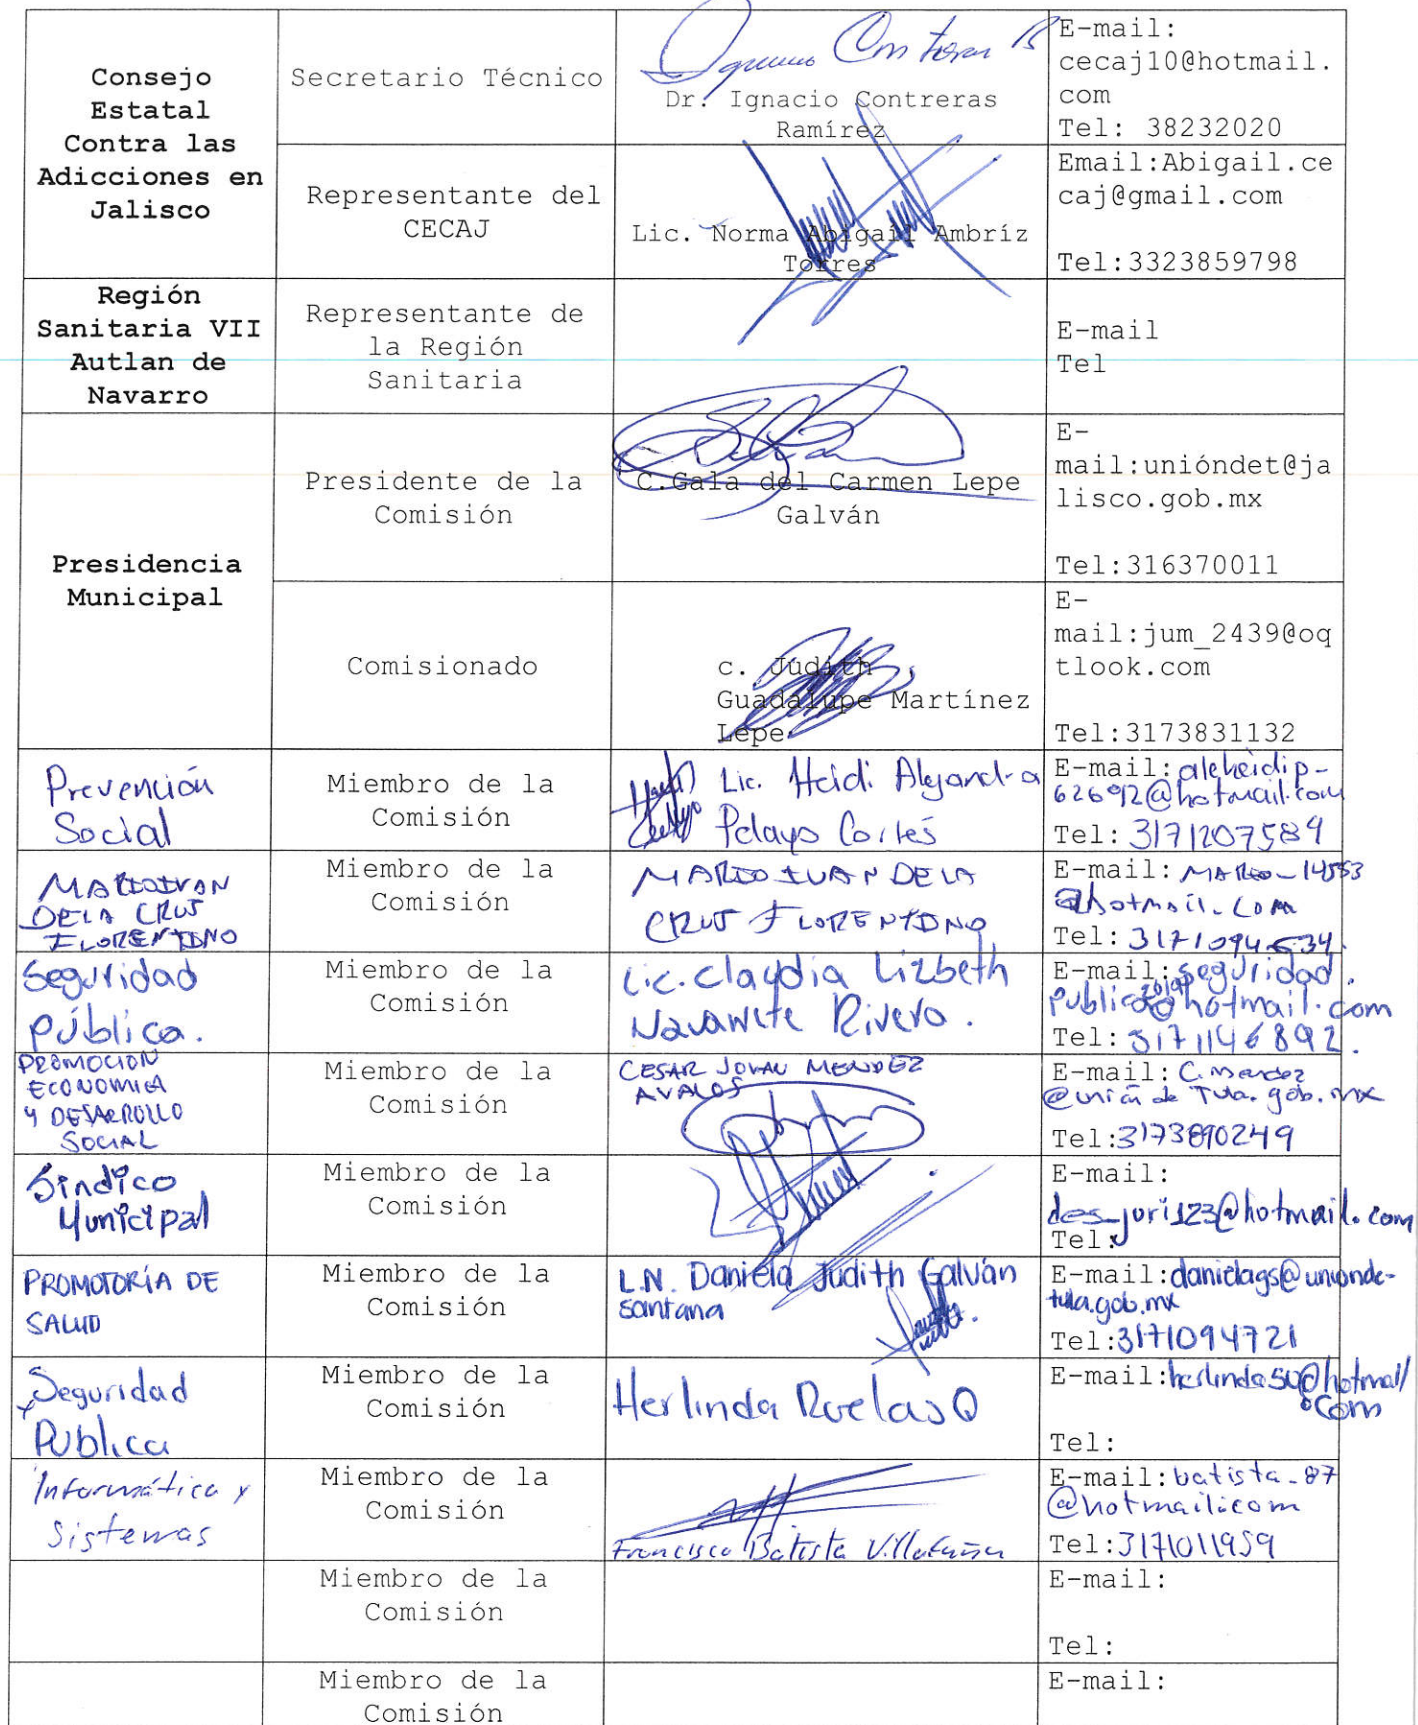 Consejo
Estatal
Contra las
Adicciones en
Jalisco
Secretario Técnico
Dr. Ignacio Contreras
Ramírez
E-mail:
cecaj10@hotmail.
com
Tel: 38232020
Representante del
CECAJ
Lic. Norma Abigail Ambríz
Torres
Email:Abigail.ce
caj@gmail.com
Tel:3323859798
Región
Sanitaria VII
Autlan de
Navarro
Representante de
la Región
Sanitaria
E-mail
Tel
Presidencia
Municipal
Presidente de la
Comisión
C.Gala del Carmen Lepe
Galván
E-
mail:unióndet@ja
lisco.gob.mx
Tel:316370011
Comisionado
c. Júdith
Guadalupe Martínez
Lepe
E-
mail:jum_2439@oq
tlook.com
Tel:3173831132
Prevención
Social
Miembro de la
Comisión
Lic. Heidi Alejandra
Pelayo Cortés
E-mail: aleheidip-
626912@hotmail.com
Tel: 3171207589
MARIO IVAN
DE LA CRUZ
FLORENTINO
Miembro de la
Comisión
MARIO IVAN DE LA
CRUZ FLORENTINO
E-mail: MARIO_14553
@hotmail.com
Tel: 3171094534
Seguridad
Pública.
Miembro de la
Comisión
Lic. Claudia Lizbeth
Navarrete Rivera.
E-mail: seguridad.
publica@hotmail.com
Tel: 3171146892.
PROMOCION
ECONOMICA
Y DESARROLLO
SOCIAL
Miembro de la
Comisión
CESAR JOVAN MENDEZ
AVALOS
E-mail: C.mendez
@unión de Tula.gob.mx
Tel:3173890249
Síndico
Municipal
Miembro de la
Comisión
E-mail:
des_juri123@hotmail.com
Tel:
PROMOTORÍA DE
SALUD
Miembro de la
Comisión
L.N. Daniela Judith Galván
Santana
E-mail:danielags@unionde-
tula.gob.mx
Tel:3171094721
Seguridad
Publica
Miembro de la
Comisión
Herlinda Ruelas O
E-mail:herlinda50@hotmail
.com
Tel:
Informática y
Sistemas
Miembro de la
Comisión
Francisco Batista Villaseñor
E-mail:batista_87
@hotmail.com
Tel:3171011959
Miembro de la
Comisión
E-mail:
Tel:
Miembro de la
Comisión
E-mail: